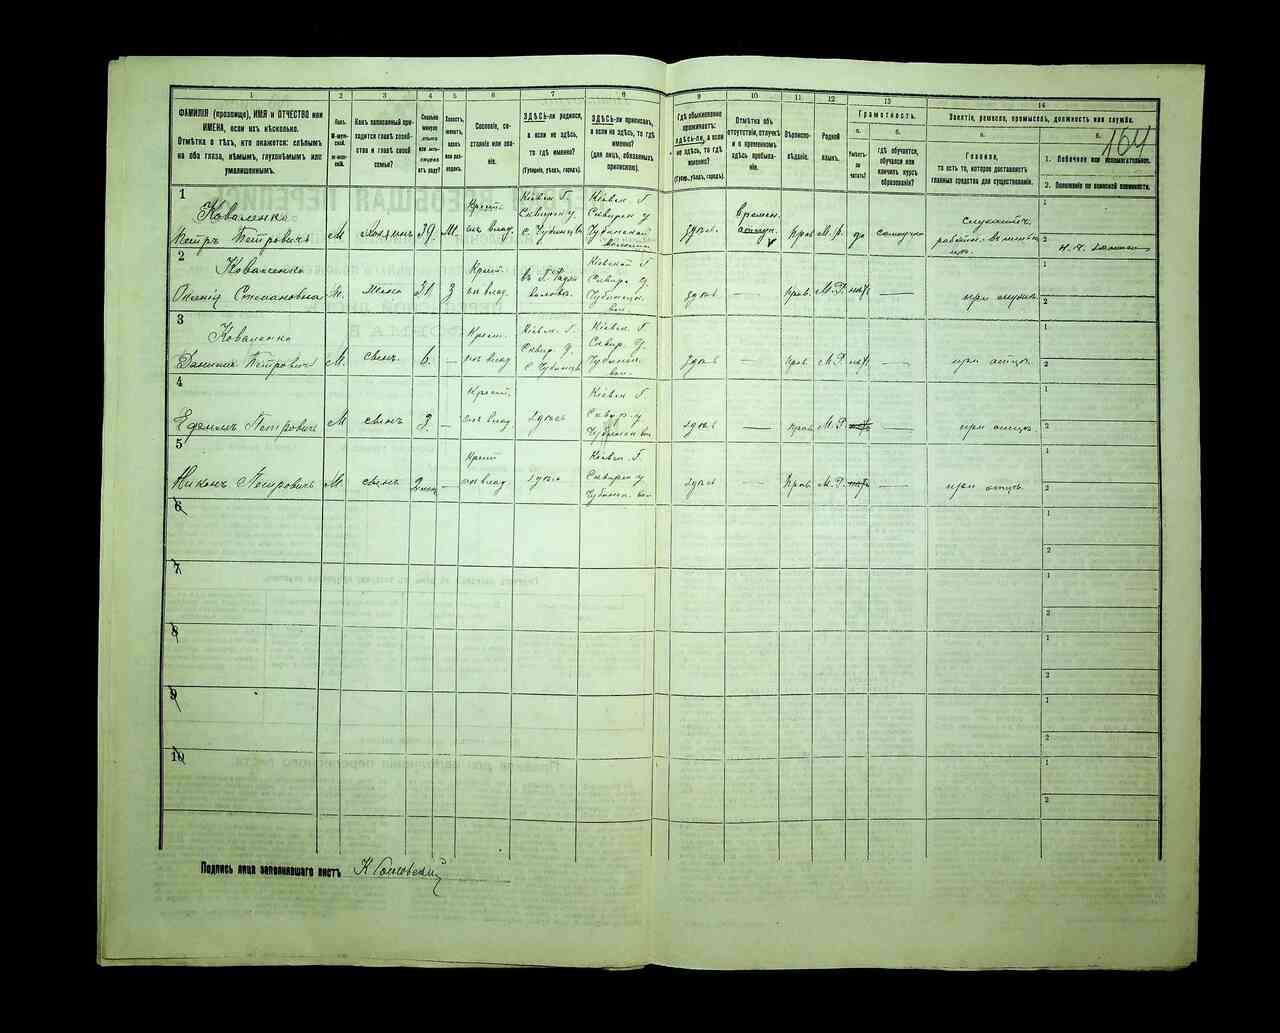 1 2 3 4 5 6 7 8 9 10 11 12 13 14
164
ФАМИЛІЯ (прозвище), ИМЯ и ОТЧЕСТВО или ИМЕНА, если ихъ нѣсколько.
Отмѣтка о тѣхъ, кто окажется: слѣпымъ на оба глаза, нѣмымъ, глухонѣмымъ или умалишеннымъ.
Полъ.
М-муж-ской.
Ж-жен-скій.
Какъ записанный при-ходится главѣ хозяй-ства и главѣ своей семьи?
Сколько минуло лѣтъ или мѣся-цевъ отъ роду?
Холостъ, женатъ, вдовъ или раз-веденъ.
Сословіе, со-стояніе или зва-ніе.
ЗДѢСЬ-ли родился, а если не здѣсь, то гдѣ именно?
(Губернія, уѣздъ, городъ).
ЗДѢСЬ-ли приписанъ, а если не здѣсь, то гдѣ именно?
(для лицъ, обязанныхъ припискою).
Гдѣ обыкновенно проживаетъ: здѣсь-ли, а если не здѣсь, то гдѣ именно?
(Губер., уѣздъ, городъ).
Отмѣтка объ отсутствіи, отлучкѣ и о временномъ здѣсь пребыва-ніи.
Вѣроиспо-вѣданіе.
Родной языкъ.
Грамотность.
а. б.
Умѣетъ-ли читать?
гдѣ обучается, обучался или кончилъ курсъ образованія?
Занятіе, ремесло, промыселъ, должность или служба.
а. б.
Главное,
то есть то, которое доставляетъ главныя средства для существованія.
1. Побочное или вспомогательное.
2. Положеніе по воинской повинности.
1
Коваленко
Петръ Петровичъ М хозяинъ 39. М. Крест. изъ влад. Кіевск. Г. Сквирск у. с. Чубинцы Кіевск Г. Сквирск у Чубинской волости здѣсь Времен. Прав М.Р. да самоучка
1
2
2
Коваленко
Степановна Ж. жена 31 З Крест. из влад. въ Г. Кіевской Г Сквир у. Чубинск. вол. здѣсь — Прав. М.Р. нѣтъ —
1
2
3
Коваленко
Даніилъ Петровичъ М. сынъ. 6. — Крест. из влад Кіевск. Г. Сквир. у. с. Чубинцы Кіевск. Г. Сквир. у. Чубинск. вол. здѣсь — Прав. М.Р нѣтъ — при отцѣ
1
2
4
Петровичъ М сынъ 3. — Крест. из влад. здѣсь Кіевск Г. Сквир. у Чубинск вол здѣсь — Прав М.Р. нѣтъ — при отцѣ
1
2
5
Никонъ Петровичъ М. сынъ — Крест из влад. здѣсь Кіевск. Г. Сквирск у Чубинск. вол здѣсь — Прав. М.Р. нѣтъ — при отцѣ.
1
2
6
1
2
7
1
2
8
1
2
9
1
2
10
1
2
Подпись лица заполнившаго листъ